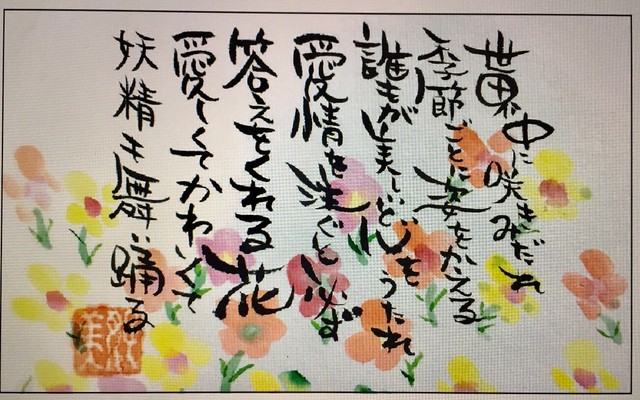 世界中に咲きみだれ
季節ごとに姿をかえる
誰もが美しいと心をうたれ
愛情を注ぐと必ず
答えをくれる花
愛しくてかわいくて
妖精も舞い踊る